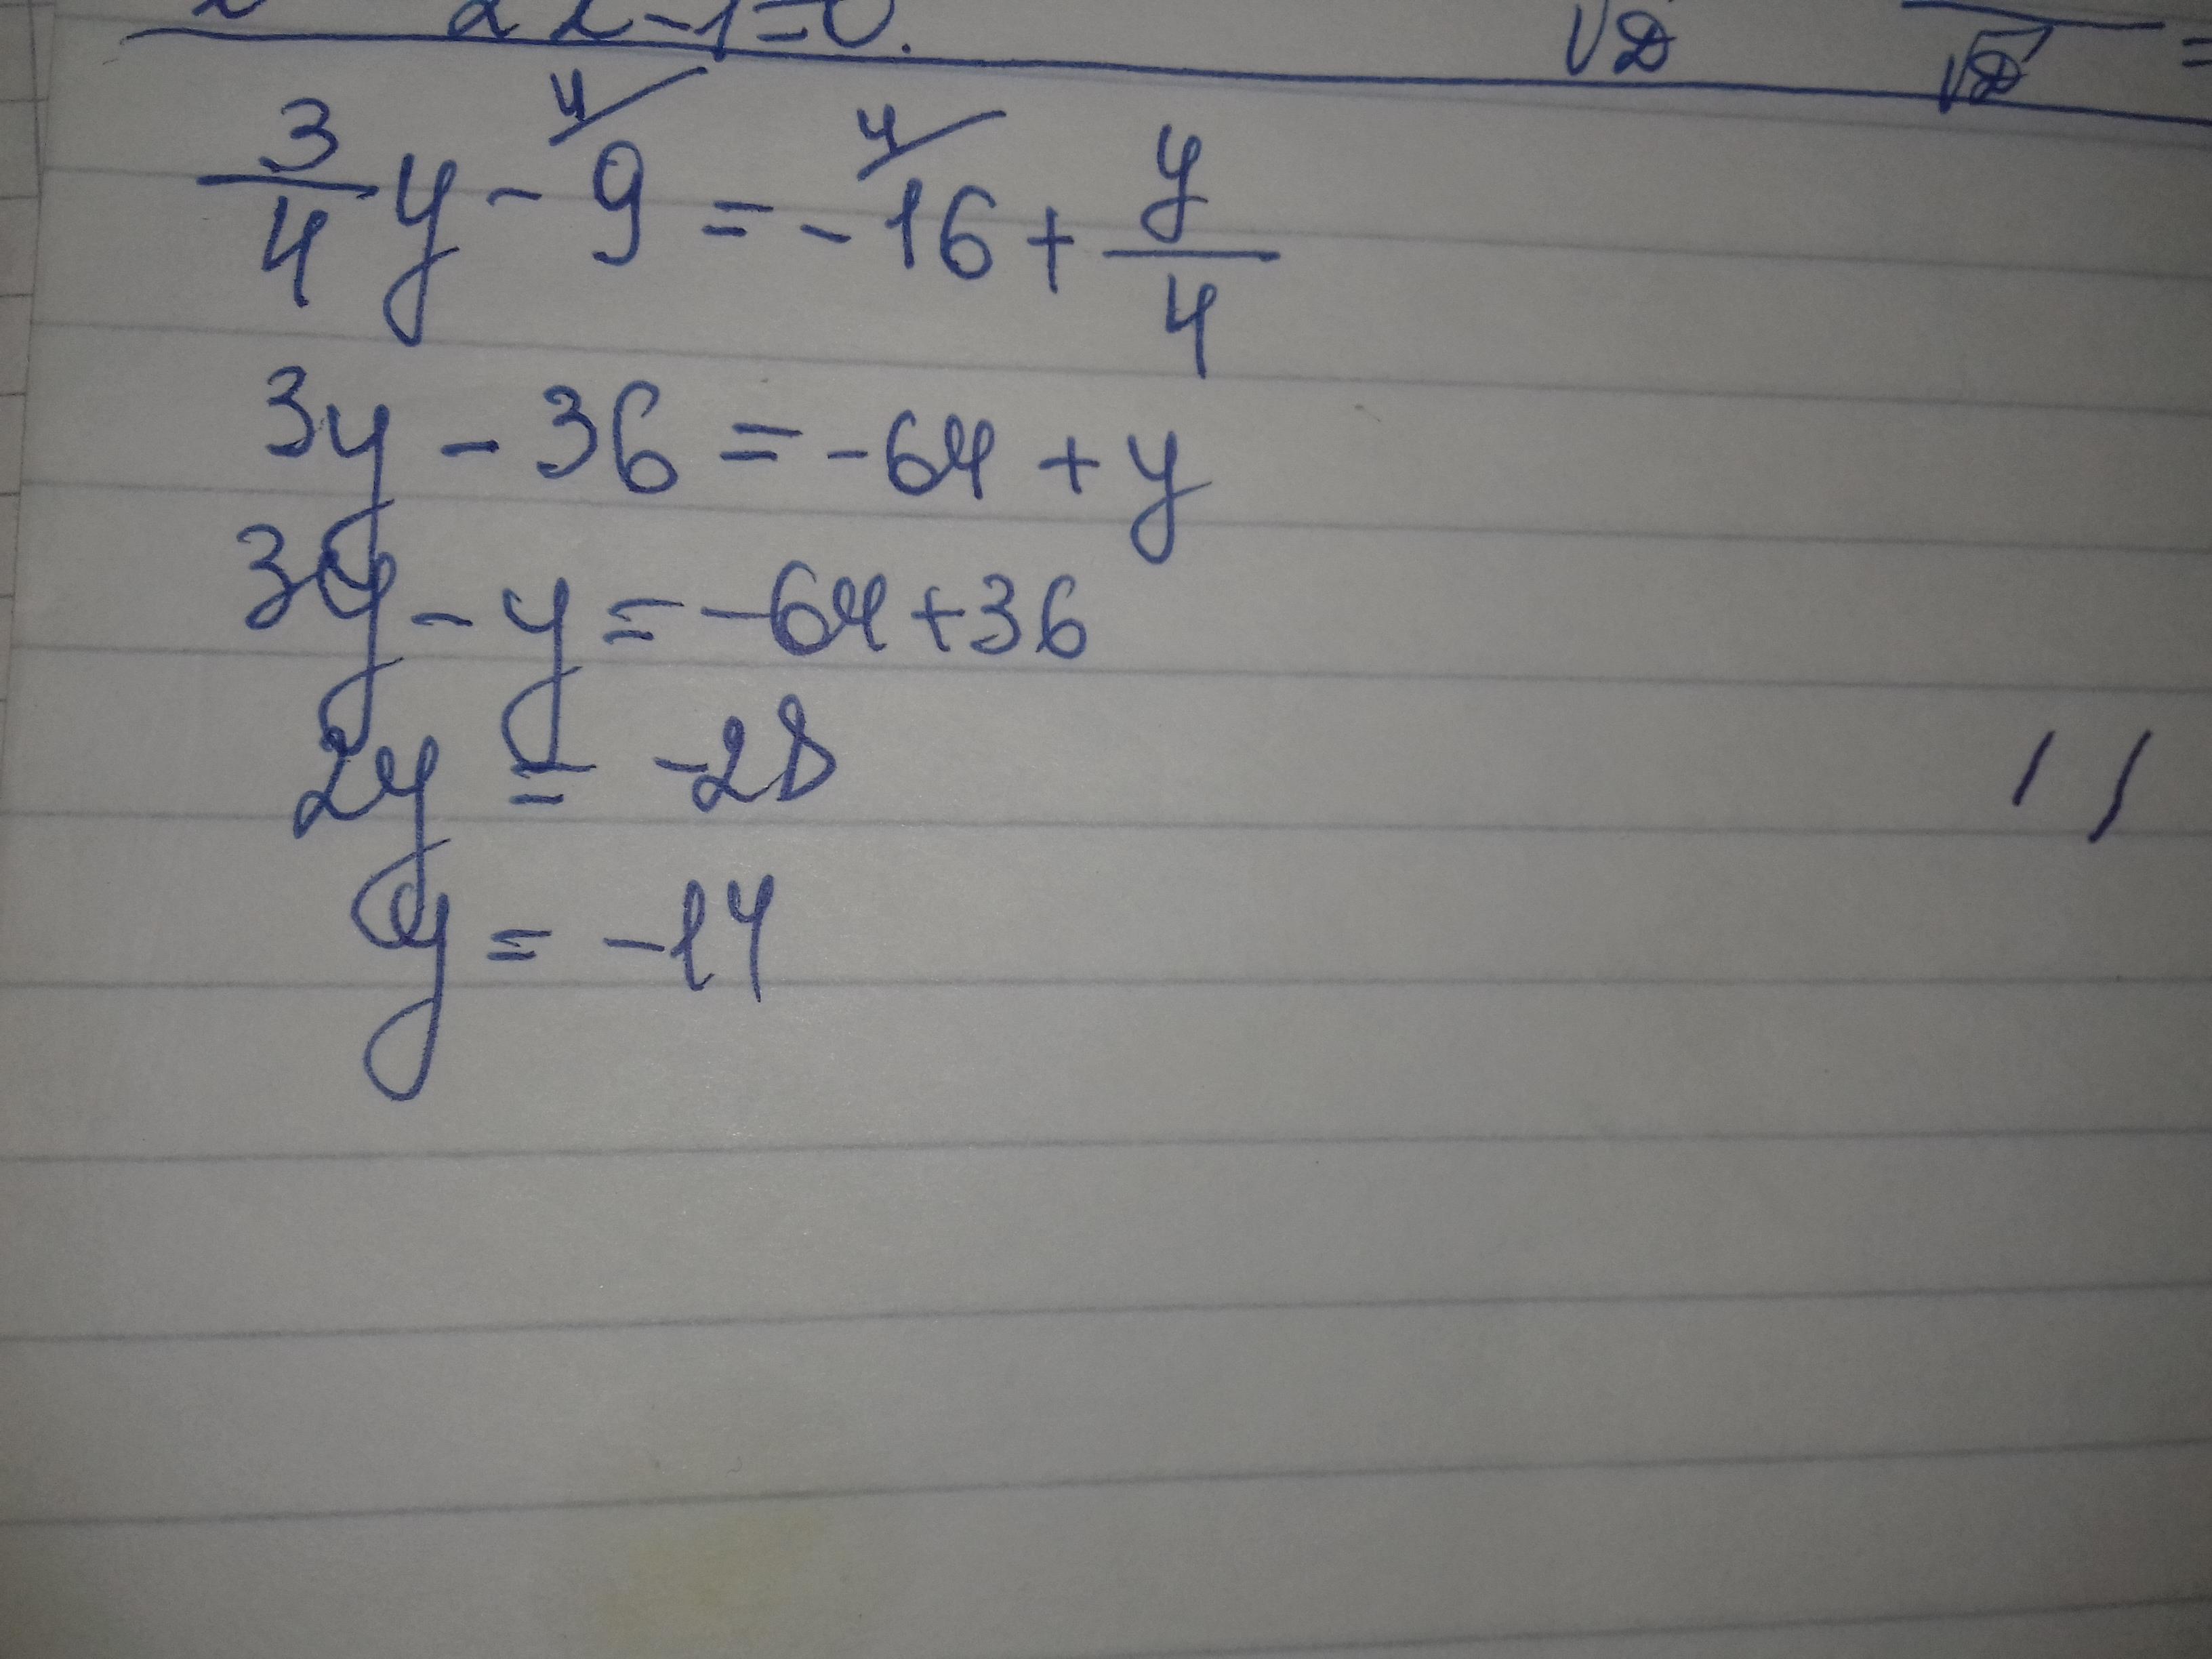 2x-1=0.
√D
√D =
3/4 y - 9 = -16 + y/4
3y - 36 = -64 + y
3y - y = -64 + 36
2y = -28
y = -14